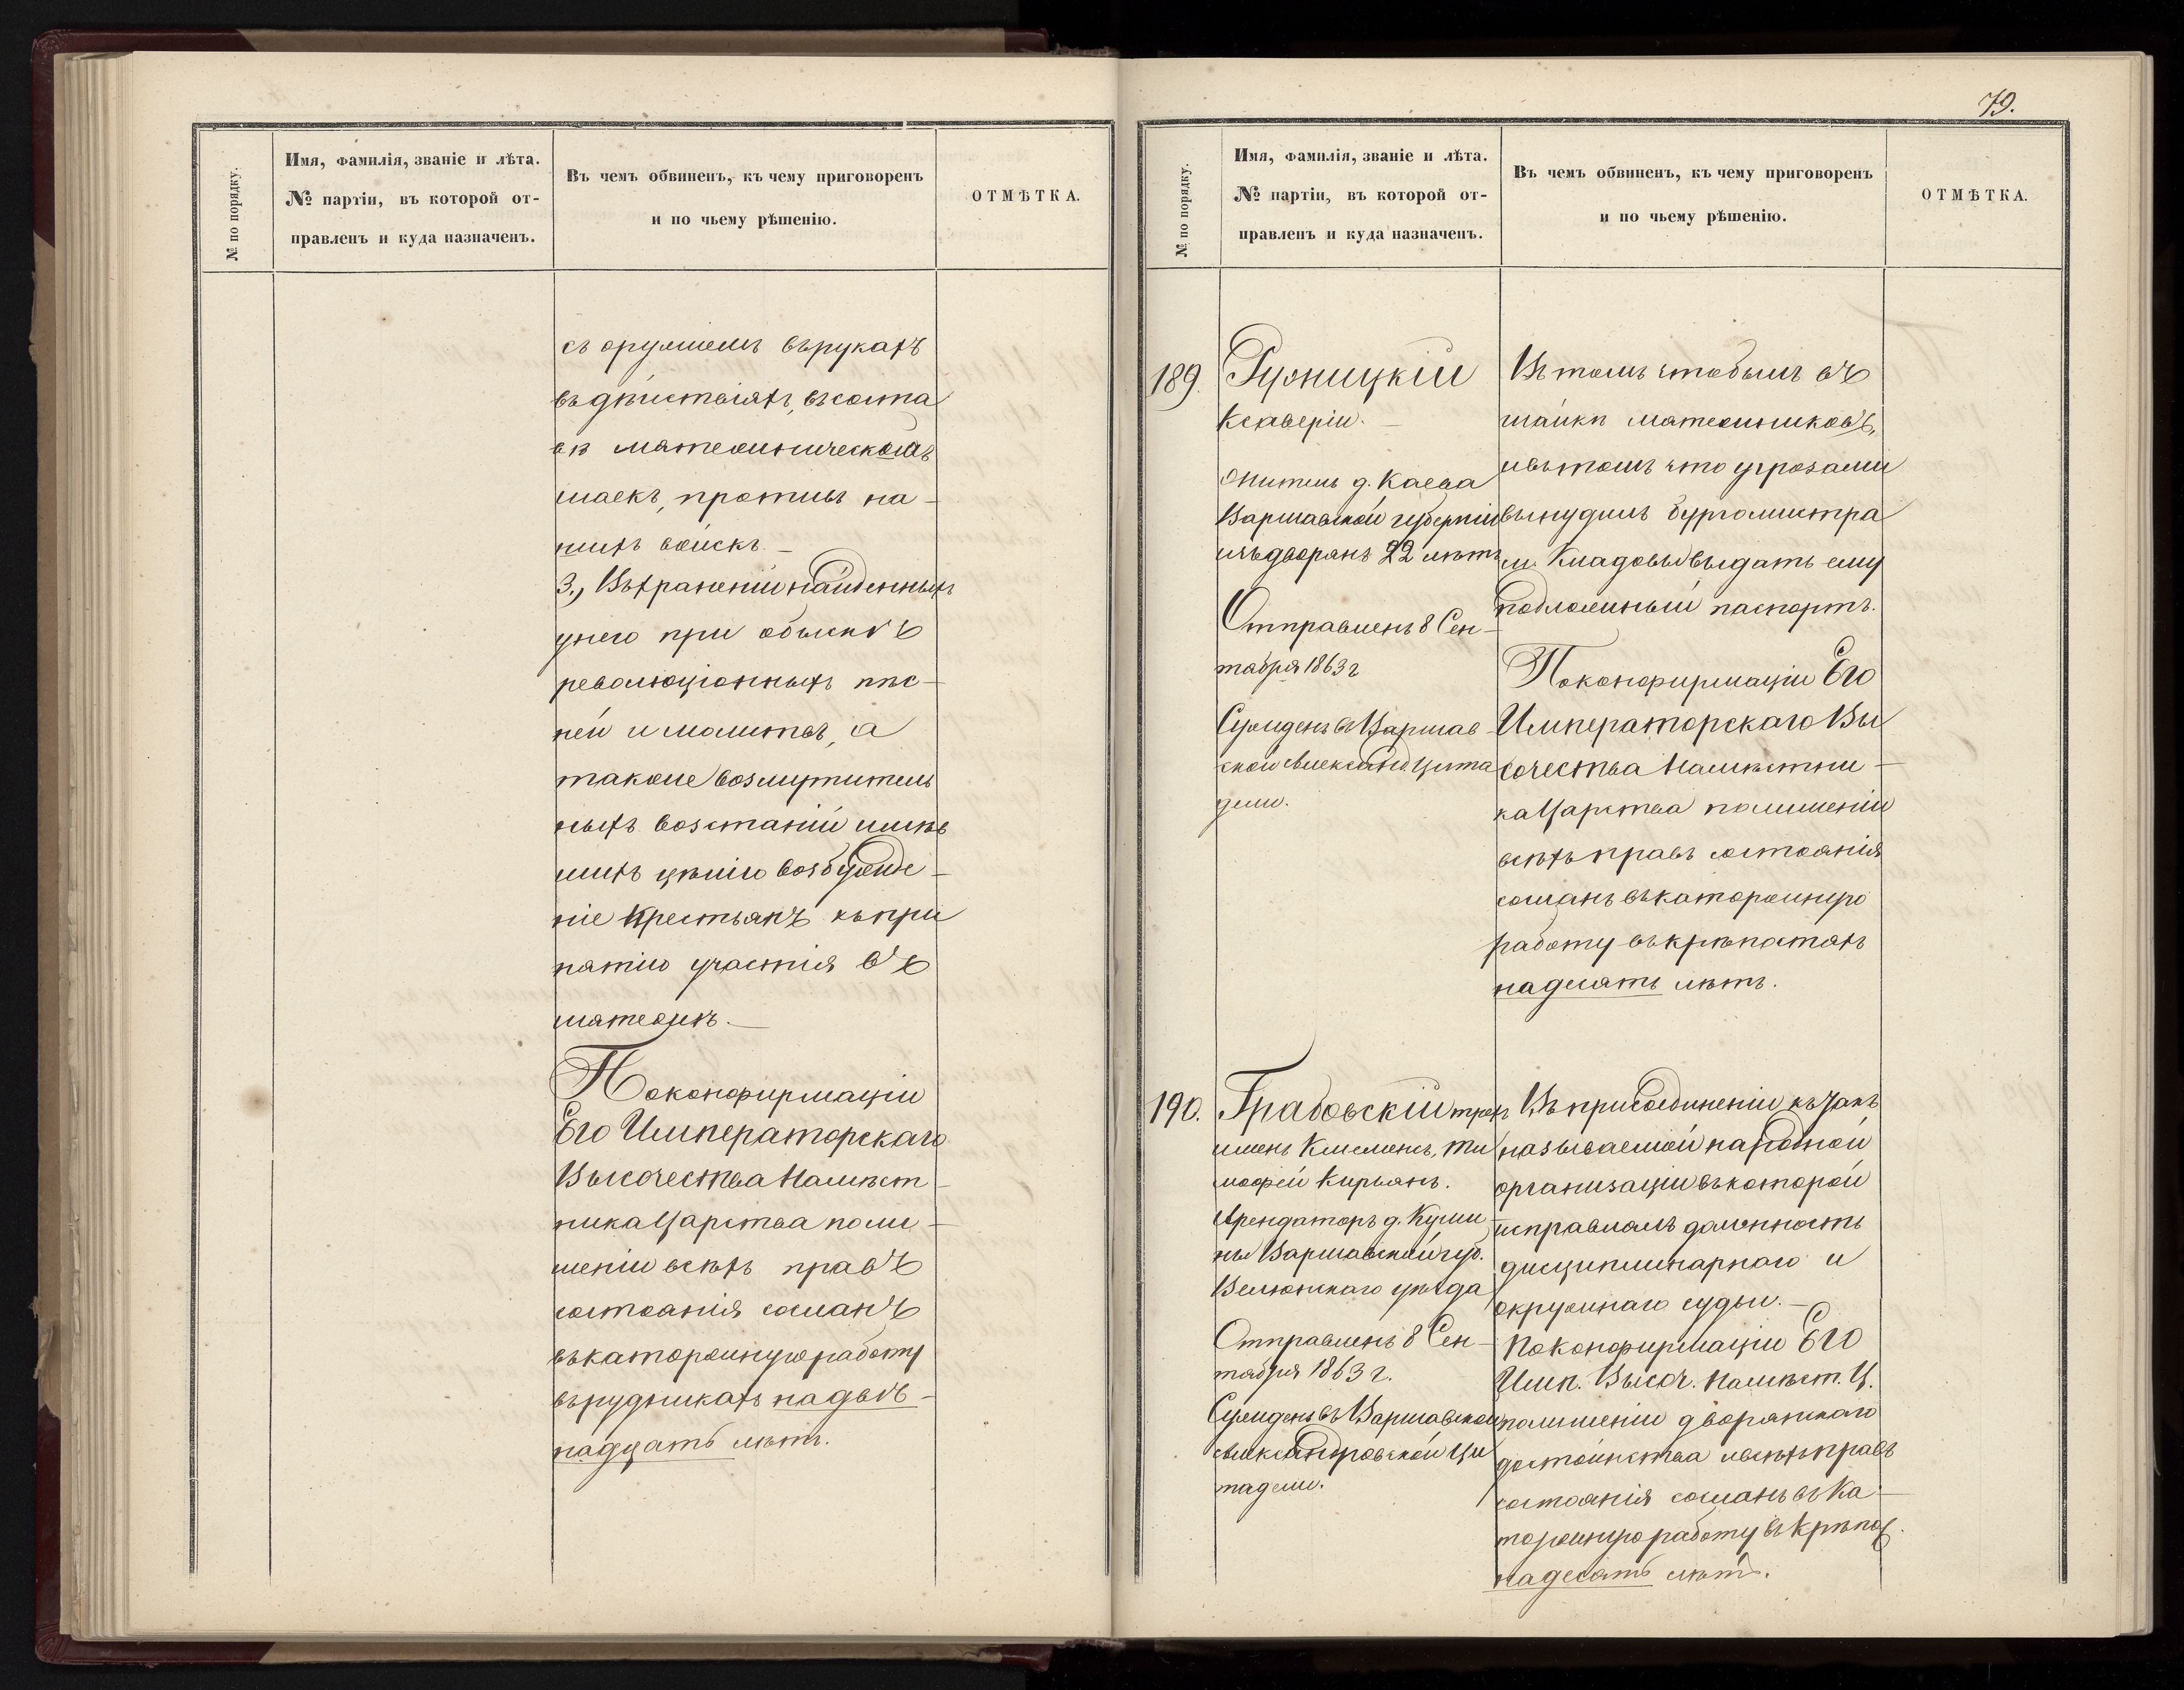 № по порядку.
Имя, фамилія, званіе и лѣта.
№ партіи, въ которой от-
правленъ и куда назначенъ.
Въ чемъ обвиненъ, къ чему приговоренъ
и по чьему рѣшенію.
ОТМѢТКА.
съ оружіемъ въ рукахъ
въ дѣйствіяхъ, въ соста
вѣ мятежническихъ
шаекъ, противъ на-
шихъ войскъ. –
3., Въ храненіи найденныхъ
у него при обыскѣ
революціонныхъ пѣс-
ней и молитвъ, а
также возмутитель
ныхъ воззваній имѣв
шихъ цѣлію возбужде-
ніе крестьянъ къ при
нятію участія въ
мятежѣ. –
По конфирмаціи
Его Императорскаго
Высочества Намѣст-
ника Царства по ли-
шеніи всѣхъ правъ
состоянія сосланъ
въ каторжную работу
въ рудникахъ на двѣ-
надцать лѣтъ.
79.
№ по порядку.
Имя, фамилія, званіе и лѣта.
№ партіи, въ которой от-
правленъ и куда назначенъ.
Въ чемъ обвиненъ, къ чему приговоренъ
и по чьему рѣшенію.
ОТМѢТКА.
189.
Ксаверій. –
Житель д.
Варшавской губерніи
изъ дворянъ 22 лѣтъ
Отправленъ 8 Сен-
тября 1863 г
Сужденъ въ Варшав-
ской Александ. цита
дели.
Въ томъ что былъ въ
шайкѣ мятежниковъ,
и въ томъ что угрозами
вынудилъ бургомистра
м. Кладовы выдать ему
подложный паспортъ.
По конфирмаціи Его
Императорскаго Вы
сочества Намѣстни-
ка Царства по лишеніи
всѣхъ правъ состоянія
сосланъ въ каторжную
работу въ крѣпостяхъ
на десять лѣтъ.
190.
Грабовскій трехъ
именъ Клеменсъ, Ти
мофей Кирьянъ.
Арендаторъ д.
ны Варшавской губ.
Велюнскаго уѣзда
Отправленъ 8 Сен-
тября 1863 г.
Сужденъ въ Варшавской
Александровской Ци
тадели.
Въ присоединеніи къ такъ
называемой народной
организаціи въ которой
исправлялъ должность
дисциплинарнаго и
окружнаго судьи. –
По конфирмаціи Его
Имп. Высоч. Намѣст. Ц.
по лишеніи дворянскаго
достоинства и всѣхъ правъ
состоянія сосланъ въ ка-
торжную работу въ крѣпос.
на десять лѣтъ.